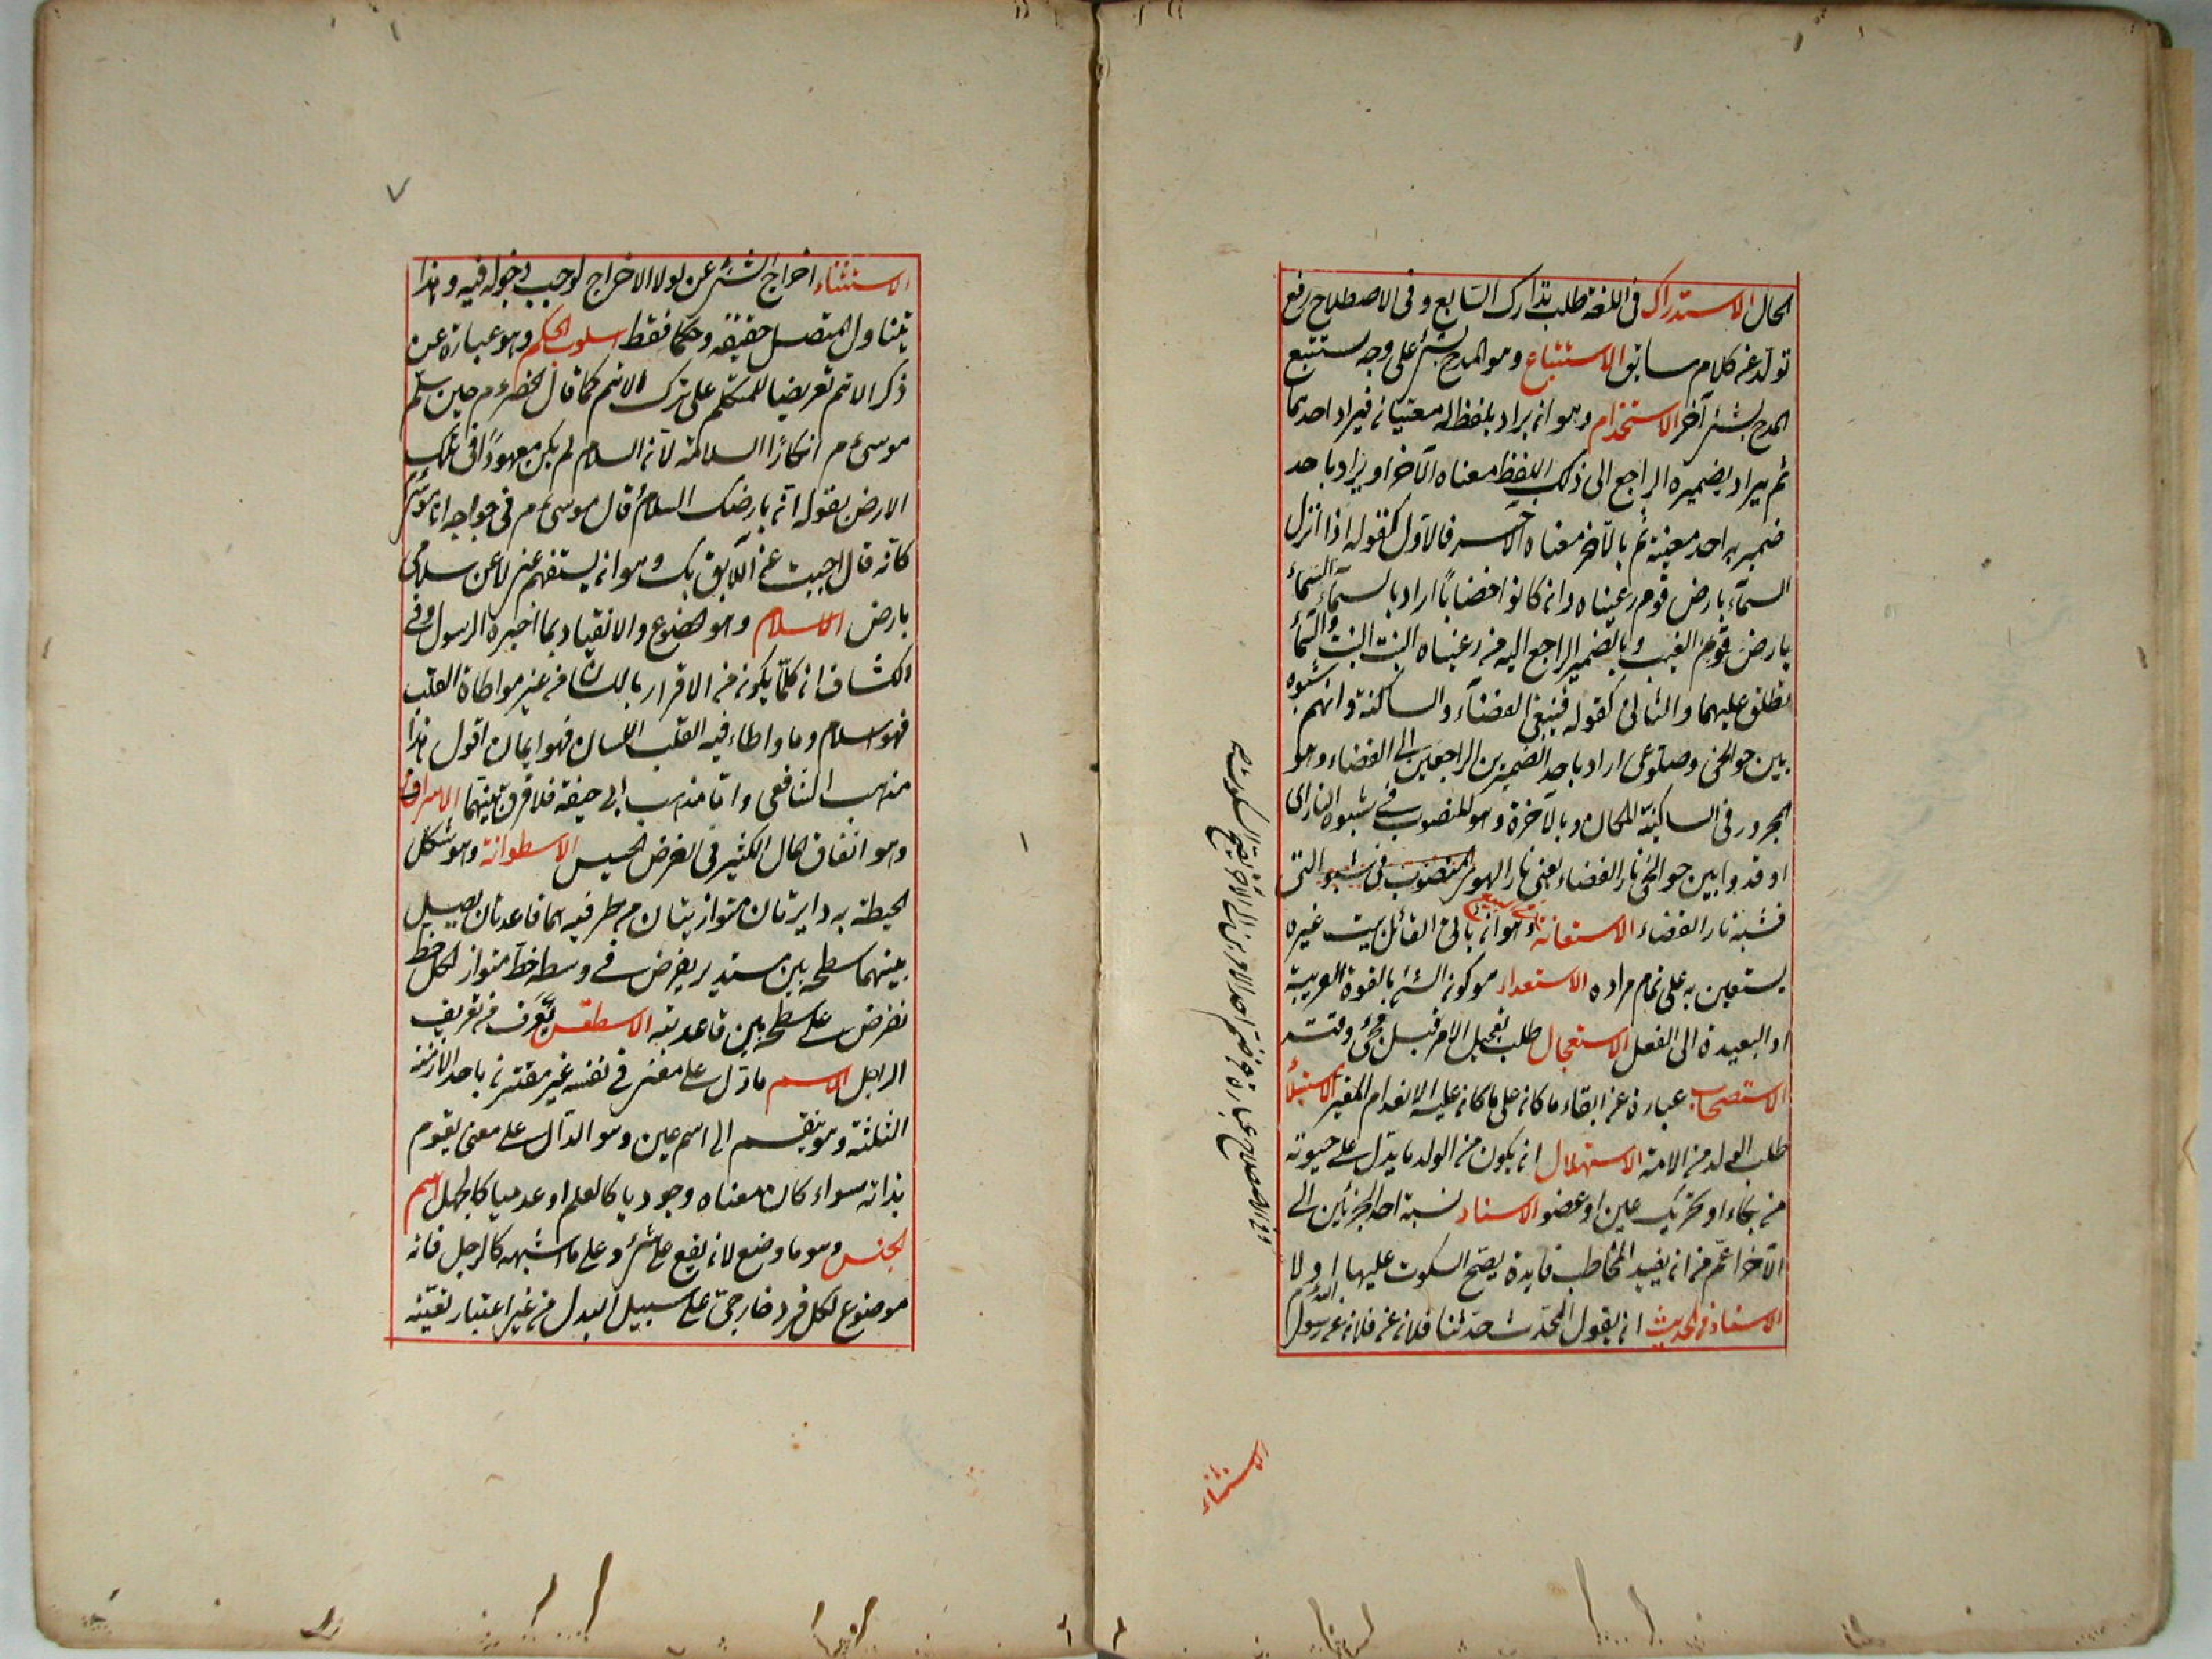 الحال الاستدراك فى اللغة طلب تدارك السامع وفى الاصطلاح رفع
تولد عن كلام سابق الاستتباع وهو المدح بشئ على وجه يستتبع
المدح بشئ آخر الاستخدام وهو ان يراد بلفظ له معنيان فيراد احدهما
ثم يراد بضميره الراجع الى ذلك اللفظ معناه الآخر او يراد باحد
ضميريه احد معنييه ثم بالآخر معناه الآخر فالاول كقوله اذا نزل
السمآء بارض قوم رعيناه وان كانوا غضابا اراد بالسمآء
بارض قوم الغيث وبالضمير الراجع اليه من رعيناه النبت والسمآء
يطلق عليهما والثانى كقوله فسقى الغضآء والساكنيه وانهم شبوه
بين جوانحى وضلوعى اراد باحد الضميرين الراجعين الى الغضاء وهو
المجرور فى الساكنيه المكان وبالآخر وهو المنصوب فى شبوه النار اى
اوقدوا بين جوانحى نار الغضاء يعنى نار الهوى المنصوب فى شبوه التى
فشبه نار الغضاء الاستعانة وهو ان يأتى القائل ببيت غيره
يستعين به على تمام مراده الاستعداد هو كون الشئ بالقوة القريبة
او البعيدة الى الفعل الاستعجال طلب تعجيل الامر قبل مجئ وقته
الاستصحاب عبارة عن ابقاء ما كان على ما كان عليه لانعدام المغير الاستيلاد
طلب الولد من الامة الاستهلال ان يكون من الولد ما يدل على حيوته
من بكاء او تحريك عين او عضو الاسناد نسبة احد الجزئين الى
الآخر اعم من ان يفيد المخاطب فايدة يصح السكوت عليها او لا
الاسناد فى الحديث ان يقول المحدث حدثنا فلان عن فلان عن رسول الله
الاستثناء
الاستثناء اخراج الشئ عن لولا الاخراج لوجب دخوله فيه وهذا
يتناول المتصل حقيقة وحكما فقط اسلوب الحكيم وهو عبارة عن
ذكر الاهم تعريضا للمتكلم على ترك الاهم كما قال الخضر ع م حين سلم
موسى ع م انكارا السلامه لان السلام لم يكن معهودا فى تلك
الارض بقوله انى بارضك السلام قال موسى ع م فى جوابه انا موسى
كانه قال اجبت عن اللايق بك وهو ان يستفهم عنى لا عن سلامى
بارض الاسلام وهو الخضوع والانقياد بما اخبره الرسول وفى
الكشاف ان كلما يكون من الاقرار باللسان من غير مواطاة القلب
فهو اسلام وما واطاء فيه القلب اللسان فهو ايمان اقول هذا
مذهب الشافعى واما مذهب ابى حنيفة فلا فرق بينهما الاسراف
وهو انفاق المال الكثير فى الغرض الخسيس الاسطوانة وهو شكل
احيط به دايرتان متوازيتان من طرفيه هما قاعدتان يصيل
بينهما سطح بين مستدير يفرض فى وسطه خط متواز لكل خط
يفرض على سطحه بين قاعدتيه الاسطقس يعرف من تعريف
الداخل الاسم ما دل على معنى فى نفسه غير مقترن باحد الازمنة
الثلثة وهو ينقسم الى اسم عين وهو الدال على معنى يقوم
بذاته سواء كان معناه وجوديا كالعلم او عدميا كالجهل اسم
الجنس وهو ما وضع لان يقع على شئ وعلى ما اشبهه كالرجل فانه
موضوع لكل فرد خارجى على سبيل البدل من غير اعتبار تعينه